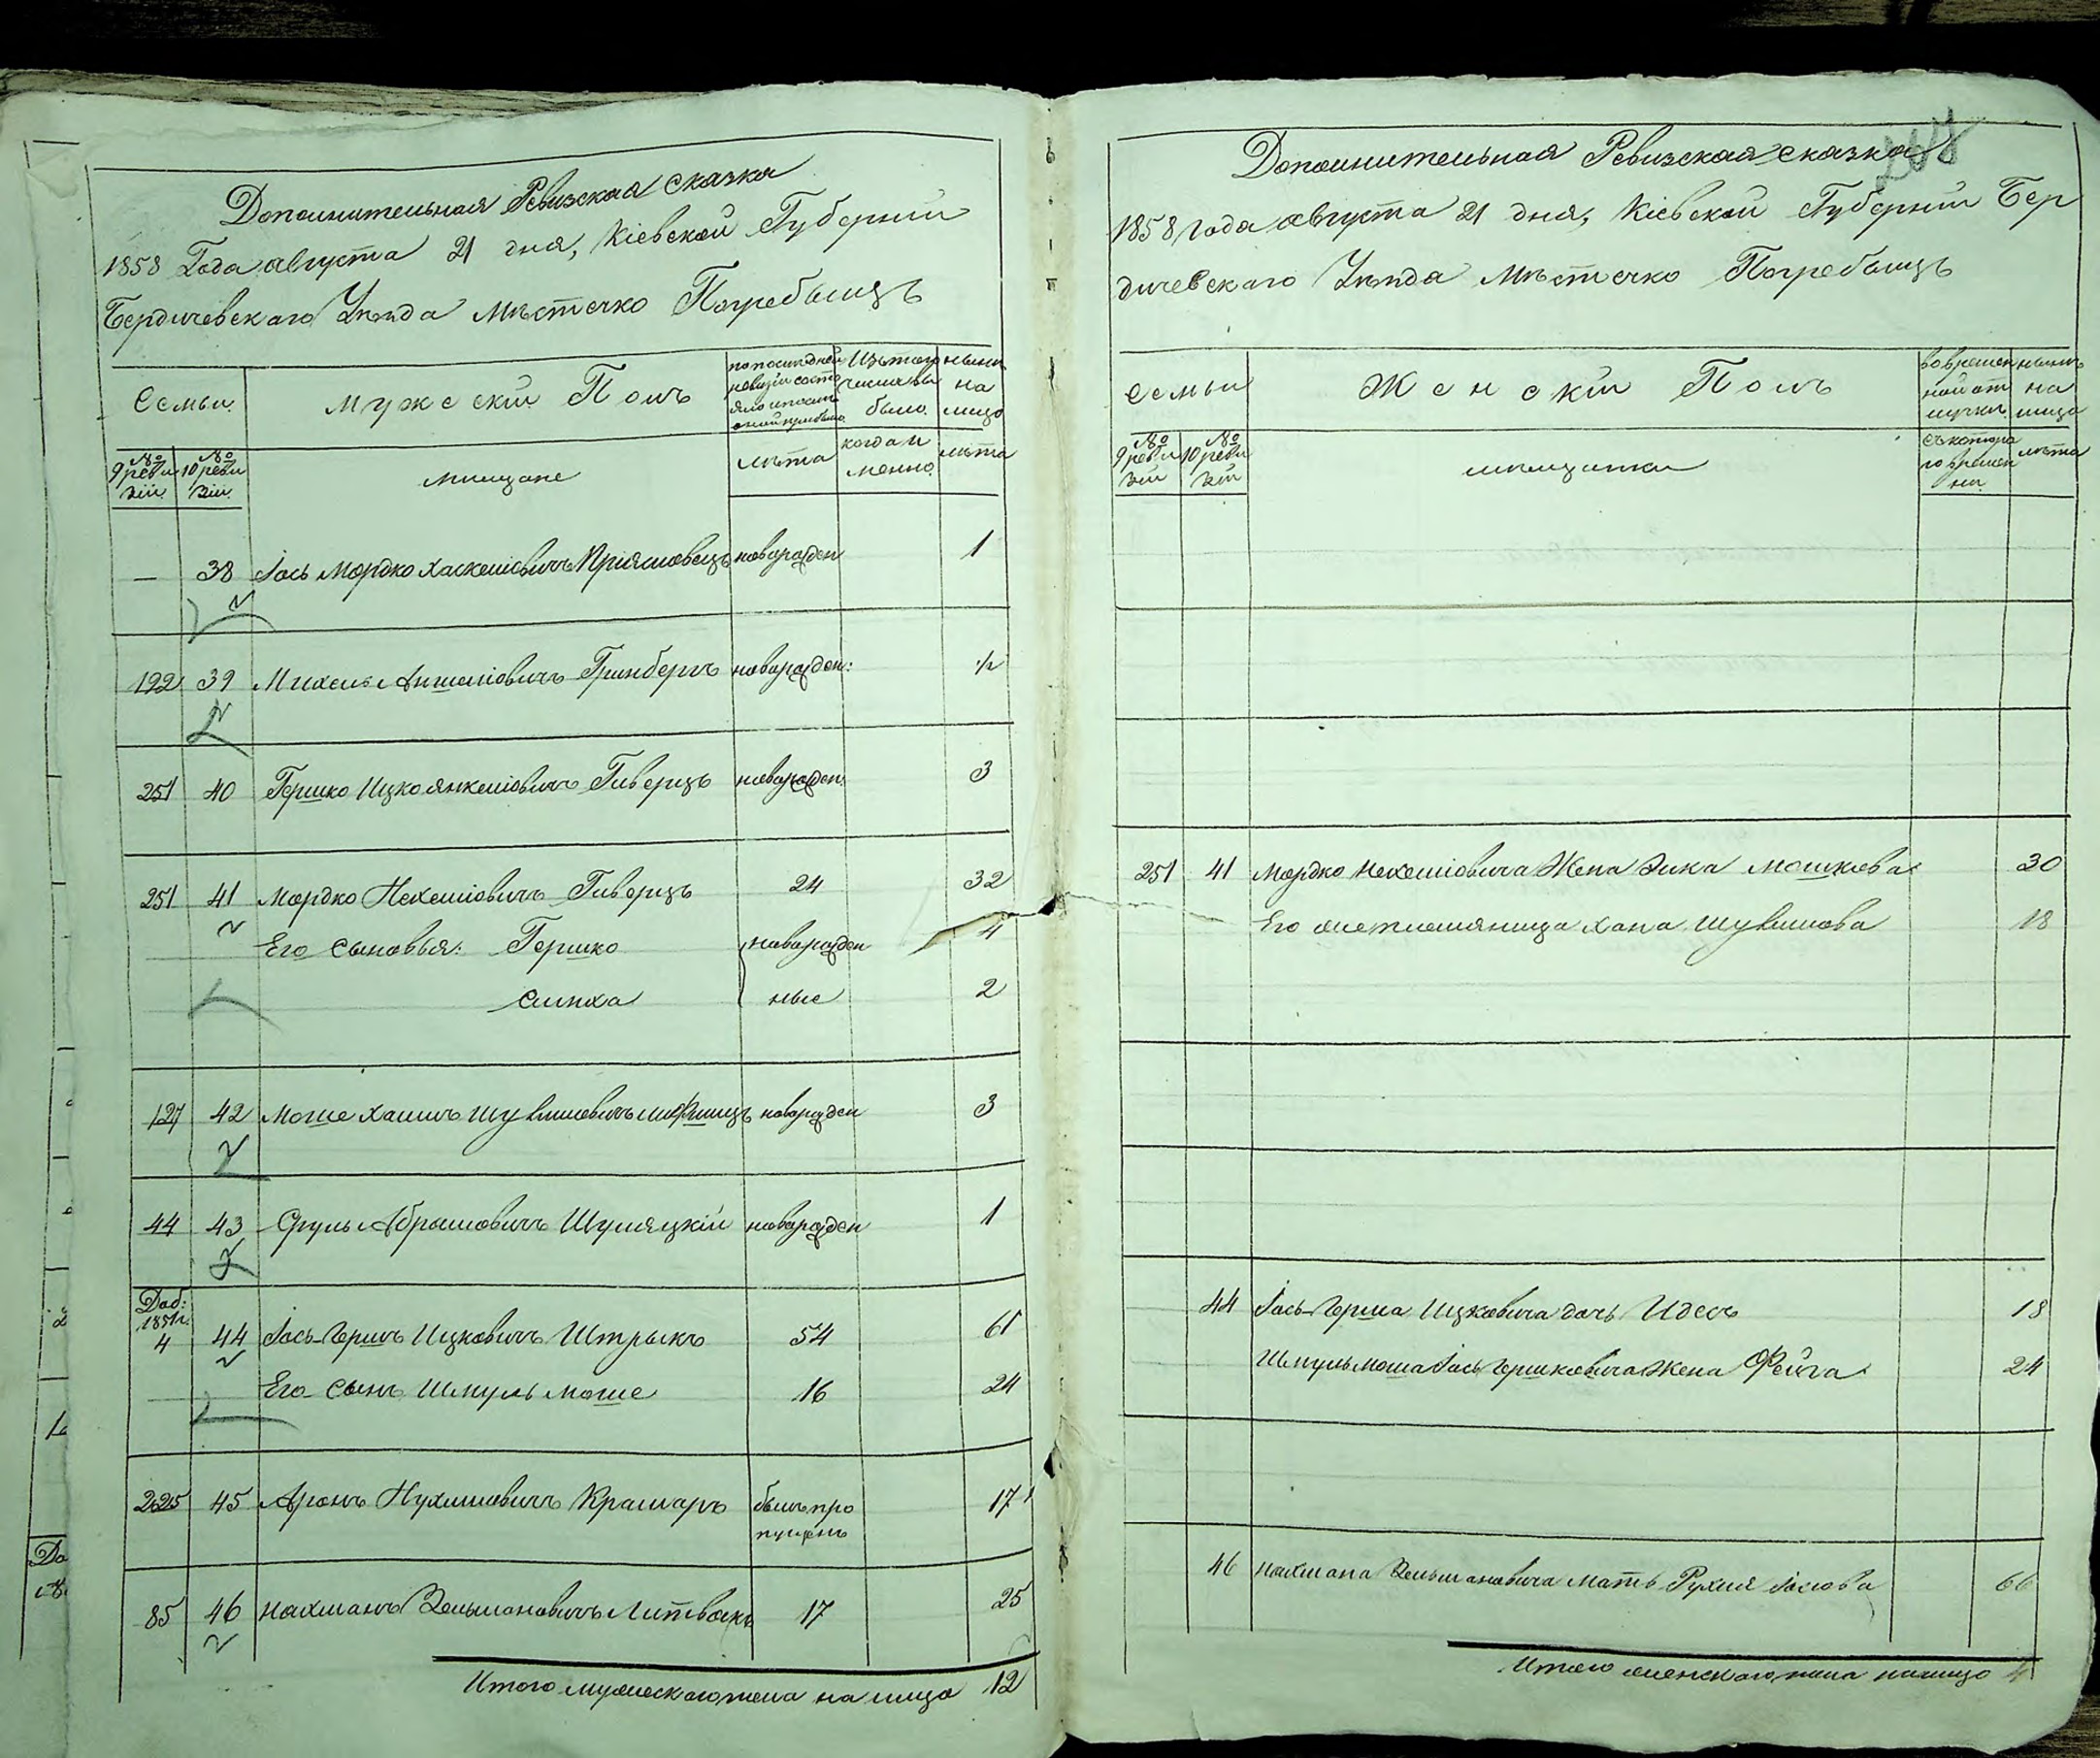 Дополнительная Ревизская сказка
1858 Года августа 21 дня, Кіевской Губерніи
Бердичевскаго Уѣзда мѣстечко Погребыщъ
Семьи
Мужескій Полъ
по последней ревизіи состояло и после оной прибыло
Изъ того числа выбыло
нынѣ на лицо
№ 9 ревизіи
№ 10 ревизіи
мѣщане
лѣта
когда именно
лѣта
— 38 Іось Мордко Хаскеліовичъ новорожден 1
192 39 Михель Аншеліовичъ Гринбергъ новорожден: ½
251 40 Гершко Ицко Янкеліовичъ Гиверцъ новорожден: 3
251 41 Мордко Нехеміовичъ Гиверцъ 24 32
Его сыновья: Гершко новорожден 4
Симха ные 2
127 42 Моше Хаимъ Шулимовичъ новорожден 3
44 43 Сруль Абрамовичъ Шумяцкій новорожден 1
Доб: 1851 г. 4 44 Іось-Гершъ Ицковичъ Штрыкъ 54 61
Его сынъ Шмуль Моше 16 24
225 45 Аронъ Нухимовичъ Крамаръ былъ про 17
пущенъ
85 46 Нахманъ Зельмановичъ Литвакъ 17 25
Итого мужескаго пола на лицо 12
Дополнительная Ревизская сказка
1858 года августа 21 дня, Кіевской Губерніи Бер
дичевскаго Уѣзда мѣстечко Погребыщъ
Семьи
Женскій Полъ
во временной отлучки
нынѣ на лицо
№ 9 ревизіи
№ 10 ревизіи
мѣщанки
съ котораго времени
лѣта
251 41 Мордко Нехеміовича Жена Эика Мошкова 30
Его племяница Хана Шулимова 18
44 Іось-Герша Ицковича дочь Идесъ 18
Шмуль Моша Іось Гершковича Жена Фейга 24
46 Нахмана Зельмановича Мать Рухля Іосіова 66
Итого женскаго пола налицо